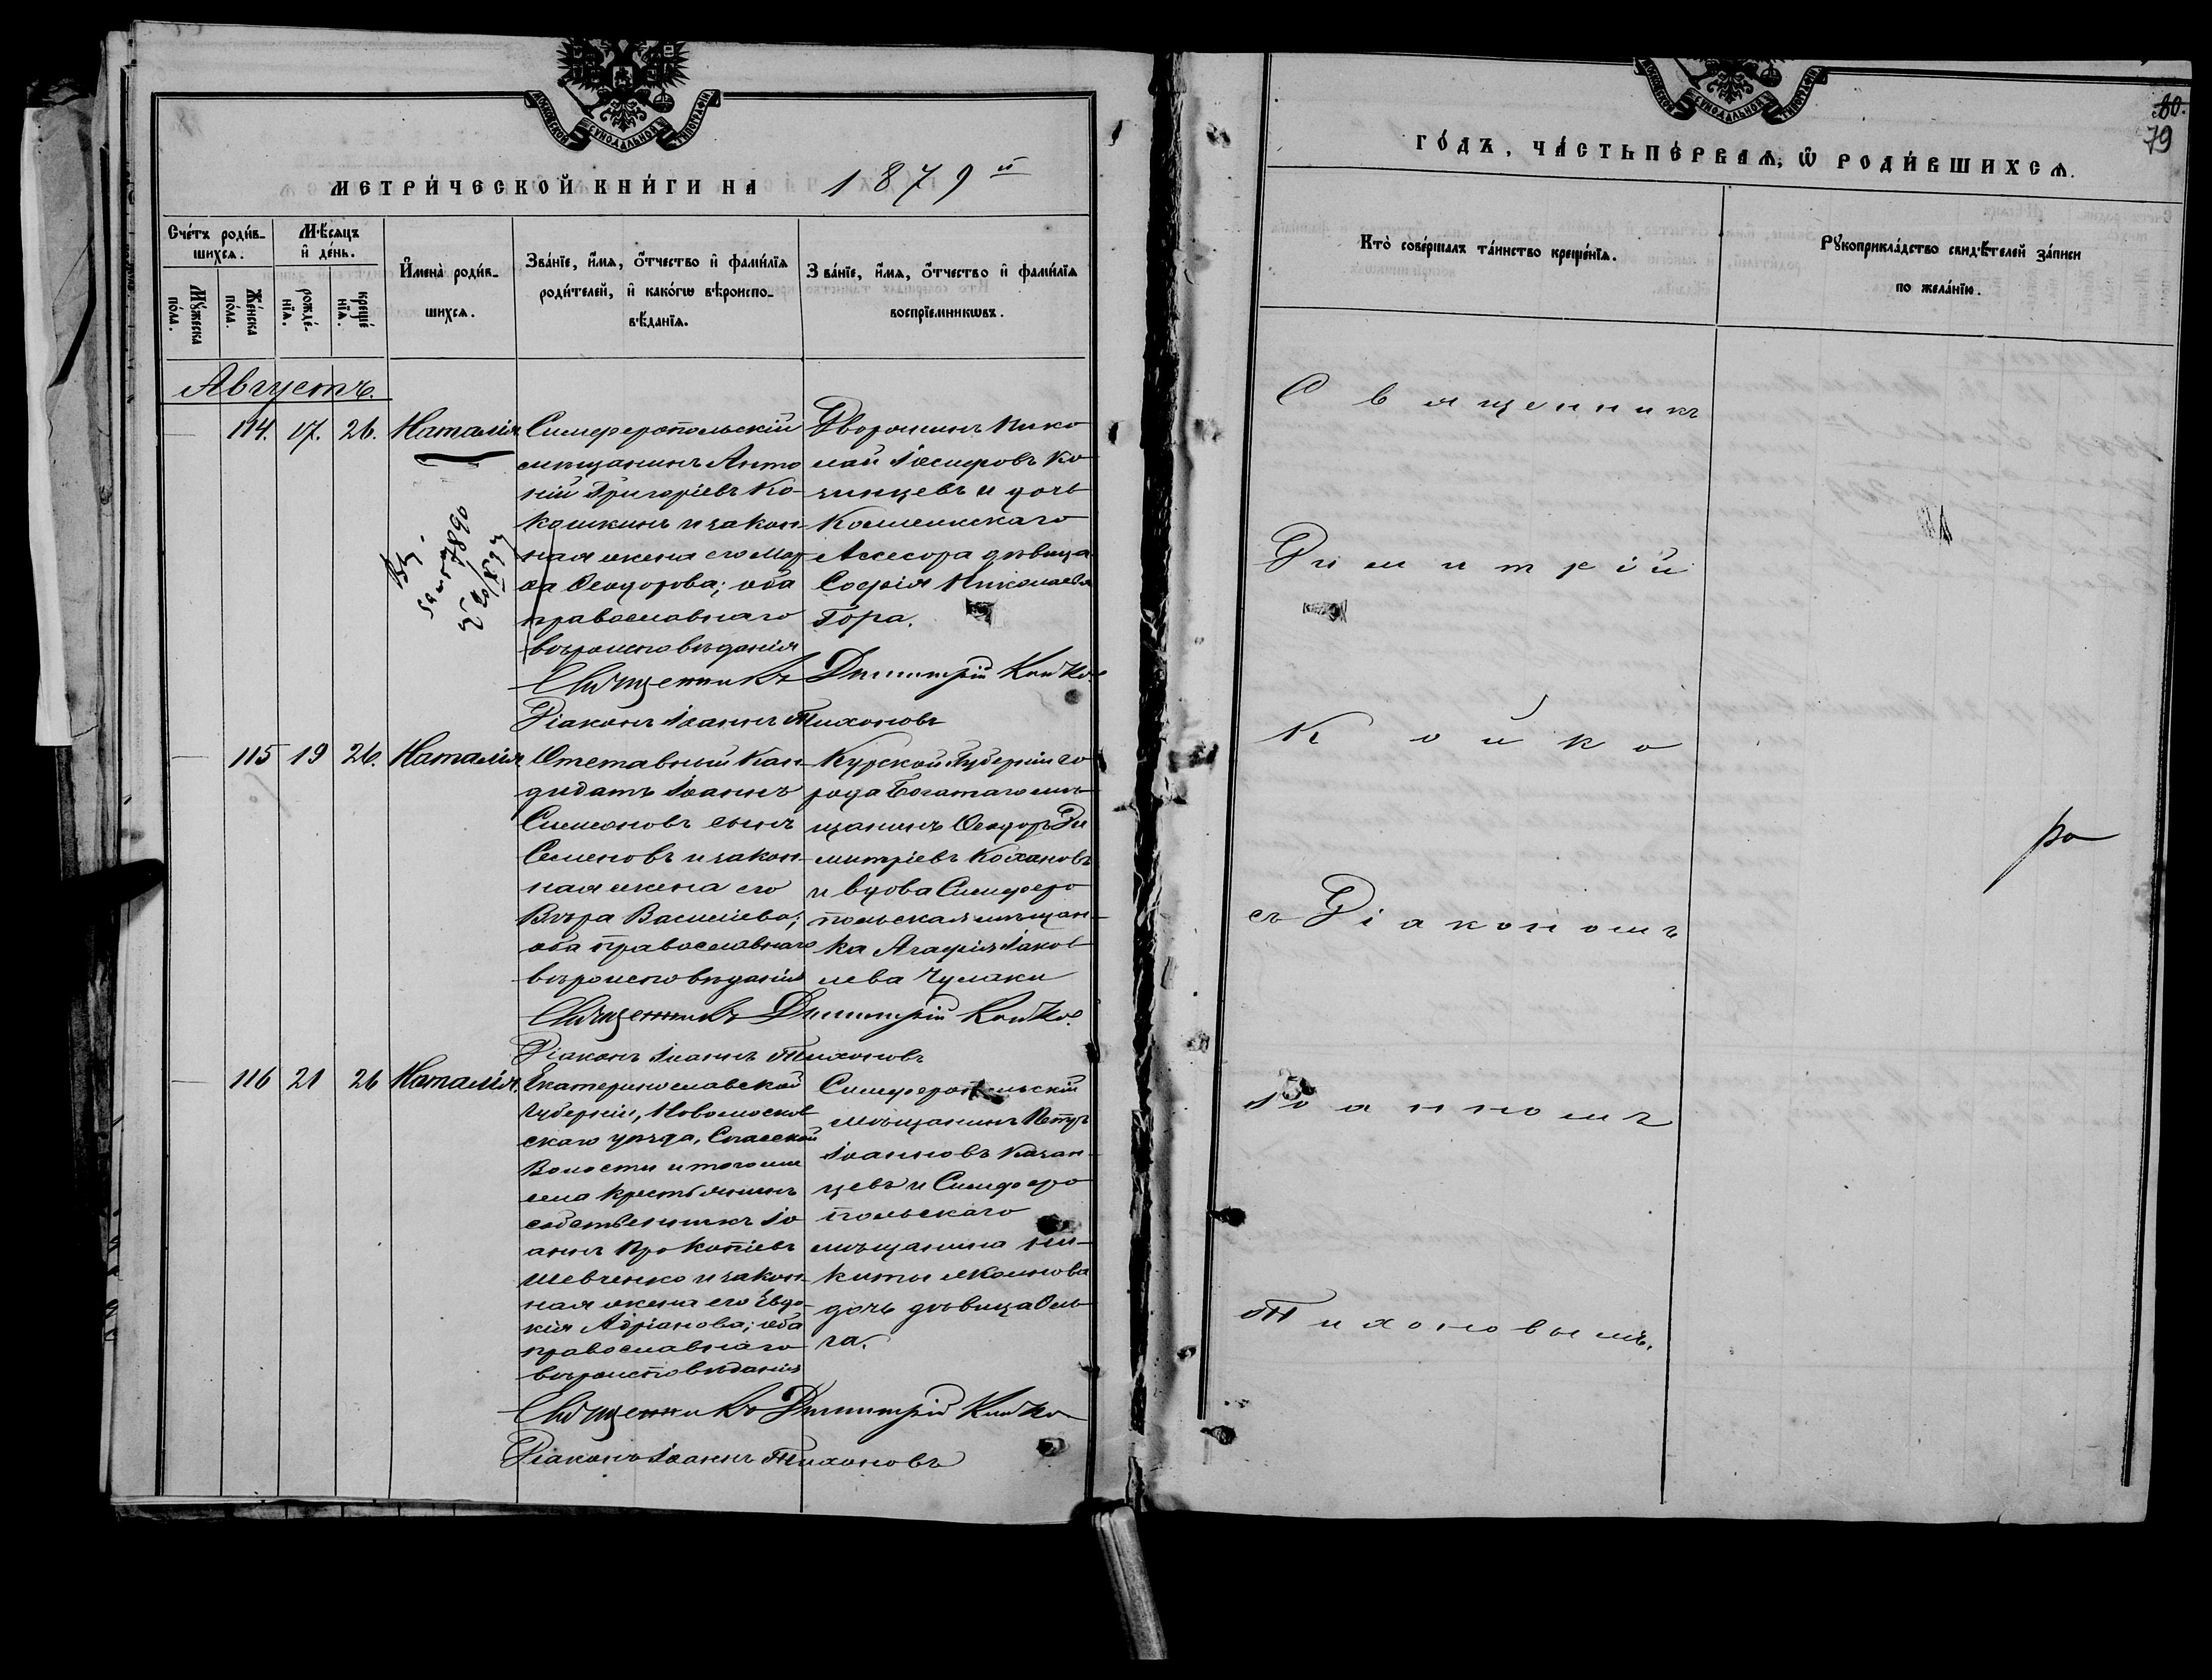 МОСКОВСКОЙ СѴНОДАЛЬНОЙ ТИПОГРАФІИ
МЕТРИ́ЧЕСКОЙ КНИ́ГИ НА 1879й
Сче́тъ роди́в-
шихсѧ.
Мꙋ́жеска
по́ла.
Же́нска
по́ла.
Мѣ́сѧцъ
и҆ де́нь.
рожде́-
нїѧ.
креще́
нїѧ.
И҆мена̀ роди́в-
шихсѧ.
Зва́нїе, и҆́мѧ, о҆́тчество и҆ фами́лїѧ
роди́телей, и҆ како́гѡ вѣроиспо-
вѣ́данїѧ.
Зва́нїе, и҆́мѧ, о҆́тчество и҆ фами́лїѧ
воспрїе́мникѡвъ.
Августъ.
114. 17. 26. Наталія
Симферопольскій
мѣщанинъ Анто
ній Григоріевъ Ко-
кошкинъ и закон-
ная жена его Мар
ѳа Ѳеодорова; оба
православнаго
вѣроисповѣданія
Дворянинъ Нико
лай Іосифовъ Ко-
зинцевъ и дочь
Коллежскаго
Ассесора дѣвица
Софія Николаева
Гора.
Священникъ Димитрій Койко
Діаконъ Іоаннъ Тихоновъ
115 19 26. Наталія
Отставный Кан-
дидатъ Іоаннъ
Симеоновъ сынъ
Семеновъ и закон-
ная жена его
Вѣра Василіева;
оба православнаго
вѣроисповѣданія
Курской Губерніи го
рода Богатаго мѣ-
щанинъ Ѳеодоръ Ди
митріевъ Кохановъ
и вдова Симферо
польская мѣщан-
ка Агафія Іаков
лева Чумаки
Священникъ Димитрій Койко
Діаконъ Іоаннъ Тихоновъ
116 21 26 Наталія.
Екатеринославской
Губерніи, Новомосков
скаго уѣзда, Спасской
Волости и того же
села крестьянинъ
собственникъ Іо
аннъ Прокопіевъ
Шевченко и закон-
ная жена его Евдо-
кія Адріанова; оба
православнаго
вѣроисповѣданія
Симферопольскій
мѣщанинъ Петръ
Іоанновъ Казан-
цевъ и Симферо
польскаго
мѣщанина Ни-
киты
дочь дѣвица Оль-
га.
Священникъ Димитрій Койко
Діаконъ Іоаннъ Тихоновъ
МОСКОВСКОЙ СѴНОДАЛЬНОЙ ТИПОГРАФІИ
80.
79
ГО́ДЪ, ЧА́СТЬ ПЕ́РВАѦ, Ѡ҆ РОДИ́ВШИХСѦ.
Кто̀ соверша́лъ та́инство креще́нїѧ.
Рꙋкоприкла́дство свидѣ́телей за́писи
по жела́нїю.
Священникъ
Димитрій
Койко
съ Діакономъ
Іоанномъ
Тихоновымъ.